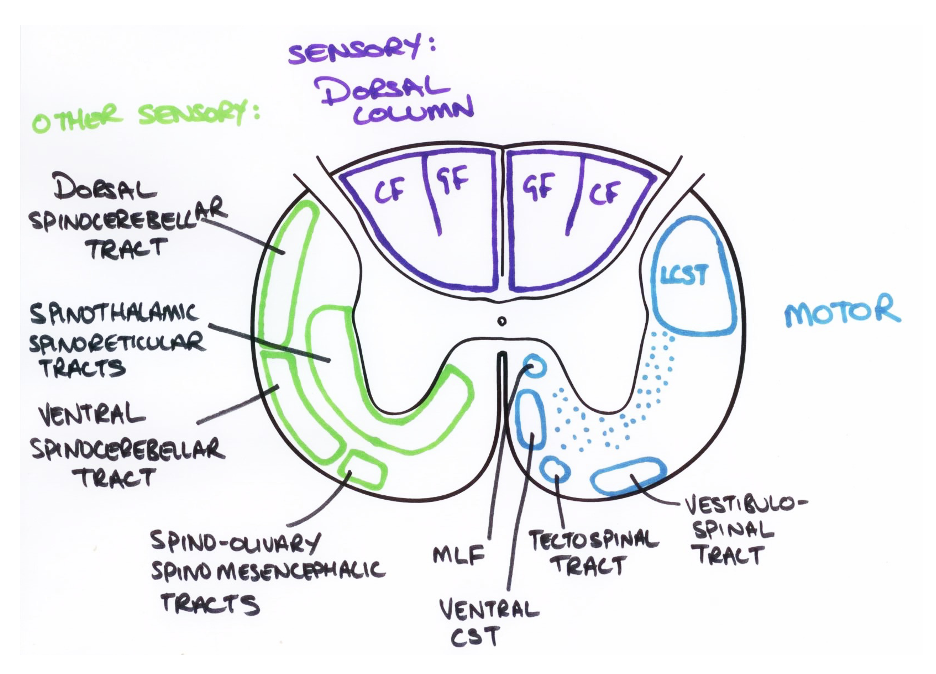 SENSORY:
DORSAL
COLUMN
OTHER SENSORY:
CF
GF
GF
CF
DORSAL
SPINOCEREBELLAR
TRACT
LCST
MOTOR
SPINOTHALAMIC
SPINORETICULAR
TRACTS
VENTRAL
SPINOCEREBELLAR
TRACT
SPINO-OLIVARY
SPINOMESENCEPHALIC
TRACTS
MLF
VENTRAL
CST
TECTOSPINAL
TRACT
VESTIBULO-
SPINAL
TRACT